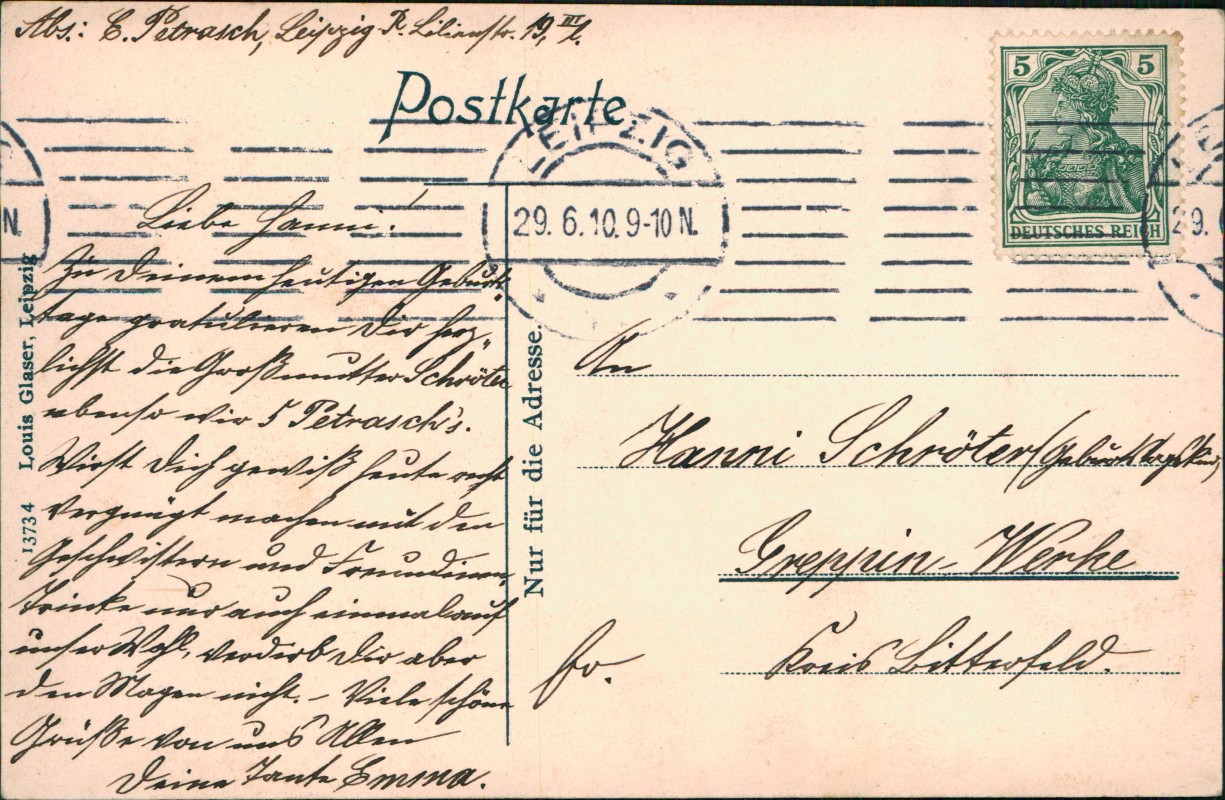 Abs: E. Petrasch, Leipzig-R. Lilienstr. 19, III l.
Postkarte
LEIPZIG
29. 6. 10. 9-10 N.
5 5
DEUTSCHES REICH
29.
N.
Liebe Hanni!
Zu Deinem heutigen Geburts-
tage gratulieren Dir herz-
lichst die Großmutter Schröter
ebenso wir 5 Petrasch's.
Wirst Dich gewiß heute recht
vergnügt machen mit den
Geschwistern und Freundinnen,
trinke nur auch einmal auf
unser Wohl, verdirb Dir aber
den Magen nicht. – Viele schöne
Grüße von uns Allen
Deine Tante Emma.
13734 Louis Glaser, Leipzig
Nur für die Adresse.
An
Hanni Schröter (Geburtstagskind)
Greppin-Werke
Kreis Bitterfeld.